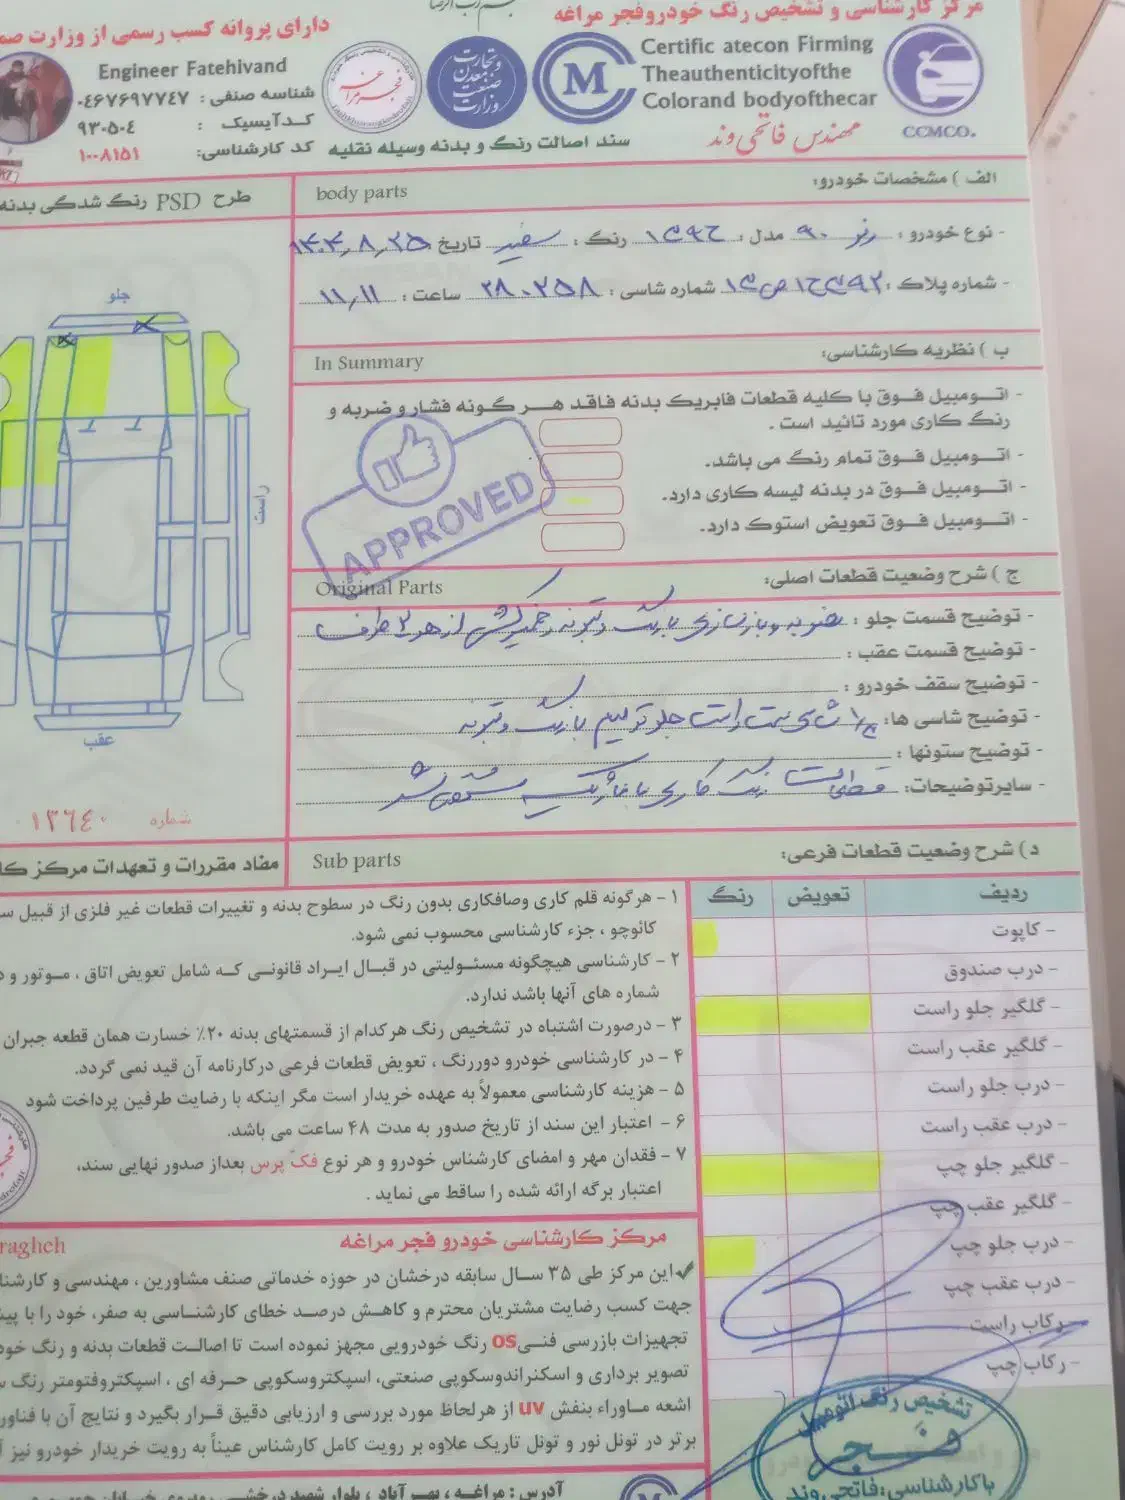 مرکز کارشناسی و تشخیص رنگ خودرو فجر مراغه
دارای پروانه کسب رسمی از وزارت صم
Certific atecon Firming
Theauthenticityofthe
Colorand bodyofthecar
CCMCO.
مهندس فاتحی وند
سند اصالت رنگ و بدنه وسیله نقلیه
وزارت صنعت معدن و تجارت
Engineer Fatehivand
شناسه صنفی : ۰۴۶۷۶۹۷۷۴۷
کدآیسیک : ۹۳۰۵۰۴
کد کارشناسی: ۱۰۰۸۱۵۱
الف ) مشخصات خودرو:
body parts
طرح PSD رنگ شدگی بدنه
- نوع خودرو : رنو ۹۰ مدل : رنگ : سفید تاریخ ۱۴۰۴٫۸٫۲۵
- شماره پلاک : شماره شاسی : ۲۸۰۲۵۸ ساعت : ۱۱٫۱۱
ب ) نظریه کارشناسی:
In Summary
- اتومبیل فوق با کلیه قطعات فابریک بدنه فاقد هر گونه فشار و ضربه و
رنگ کاری مورد تائید است .
- اتومبیل فوق تمام رنگ می باشد.
- اتومبیل فوق در بدنه لیسه کاری دارد.
- اتومبیل فوق تعویض استوک دارد.
APPROVED
ج ) شرح وضعیت قطعات اصلی:
Original Parts
- توضیح قسمت جلو : از هر ۲ طرف
- توضیح قسمت عقب :
- توضیح سقف خودرو :
- توضیح شاسی ها: راست جلو ترمیم با رنگ
- توضیح ستونها :
- سایرتوضیحات: رنگ کاری
جلو
راست
عقب
شماره ۰۱۳۶۴۰
د) شرح وضعیت قطعات فرعی:
Sub parts
مفاد مقررات و تعهدات مرکز کا
ردیف تعویض رنگ
- کاپوت
- درب صندوق
- گلگیر جلو راست
- گلگیر عقب راست
- درب جلو راست
- درب عقب راست
- گلگیر جلو چپ
- گلگیر عقب چپ
- درب جلو چپ
- درب عقب چپ
- رکاب راست
- رکاب چپ
۱ - هرگونه قلم کاری وصافکاری بدون رنگ در سطوح بدنه و تغییرات قطعات غیر فلزی از قبیل
کائوچو ، جزء کارشناسی محسوب نمی شود.
۲ - کارشناسی هیچگونه مسئولیتی در قبال ایراد قانونی که شامل تعویض اتاق ، موتور و
شماره های آنها باشد ندارد.
۳ - درصورت اشتباه در تشخیص رنگ هرکدام از قسمتهای بدنه ۲۰٪ خسارت همان قطعه جبران
۴ - در کارشناسی خودرو دوررنگ ، تعویض قطعات فرعی درکارنامه آن قید نمی گردد.
۵ - هزینه کارشناسی معمولاً به عهده خریدار است مگر اینکه با رضایت طرفین پرداخت شود
۶ - اعتبار این سند از تاریخ صدور به مدت ۴۸ ساعت می باشد.
۷ - فقدان مهر و امضای کارشناس خودرو و هر نوع فک پرس بعداز صدور نهایی سند،
اعتبار برگه ارائه شده را ساقط می نماید .
مرکز کارشناسی خودرو فجر مراغه
ragheh
این مرکز طی ۳۵ سال سابقه درخشان در حوزه خدماتی صنف مشاورین ، مهندسی و کارشنا
جهت کسب رضایت مشتریان محترم و کاهش درصد خطای کارشناسی به صفر، خود را با پی
تجهیزات بازرسی فنی os رنگ خودرویی مجهز نموده است تا اصالت قطعات بدنه و رنگ خود
تصویر برداری و اسکنراندوسکوپی صنعتی، اسپکتروسکوپی حرفه ای ، اسپکتروفتومتر رنگ
اشعه ماوراء بنفش uv از هرلحاظ مورد بررسی و ارزیابی دقیق قرار بگیرد و نتایج آن با فناور
برتر در تونل نور و تونل تاریک علاوه بر رویت کامل کارشناس عیناً به رویت خریدار خودرو نیز
تشخیص رنگ اتومبیل
فجر
با کارشناسی: فاتحی وند
آدرس : مراغه ،